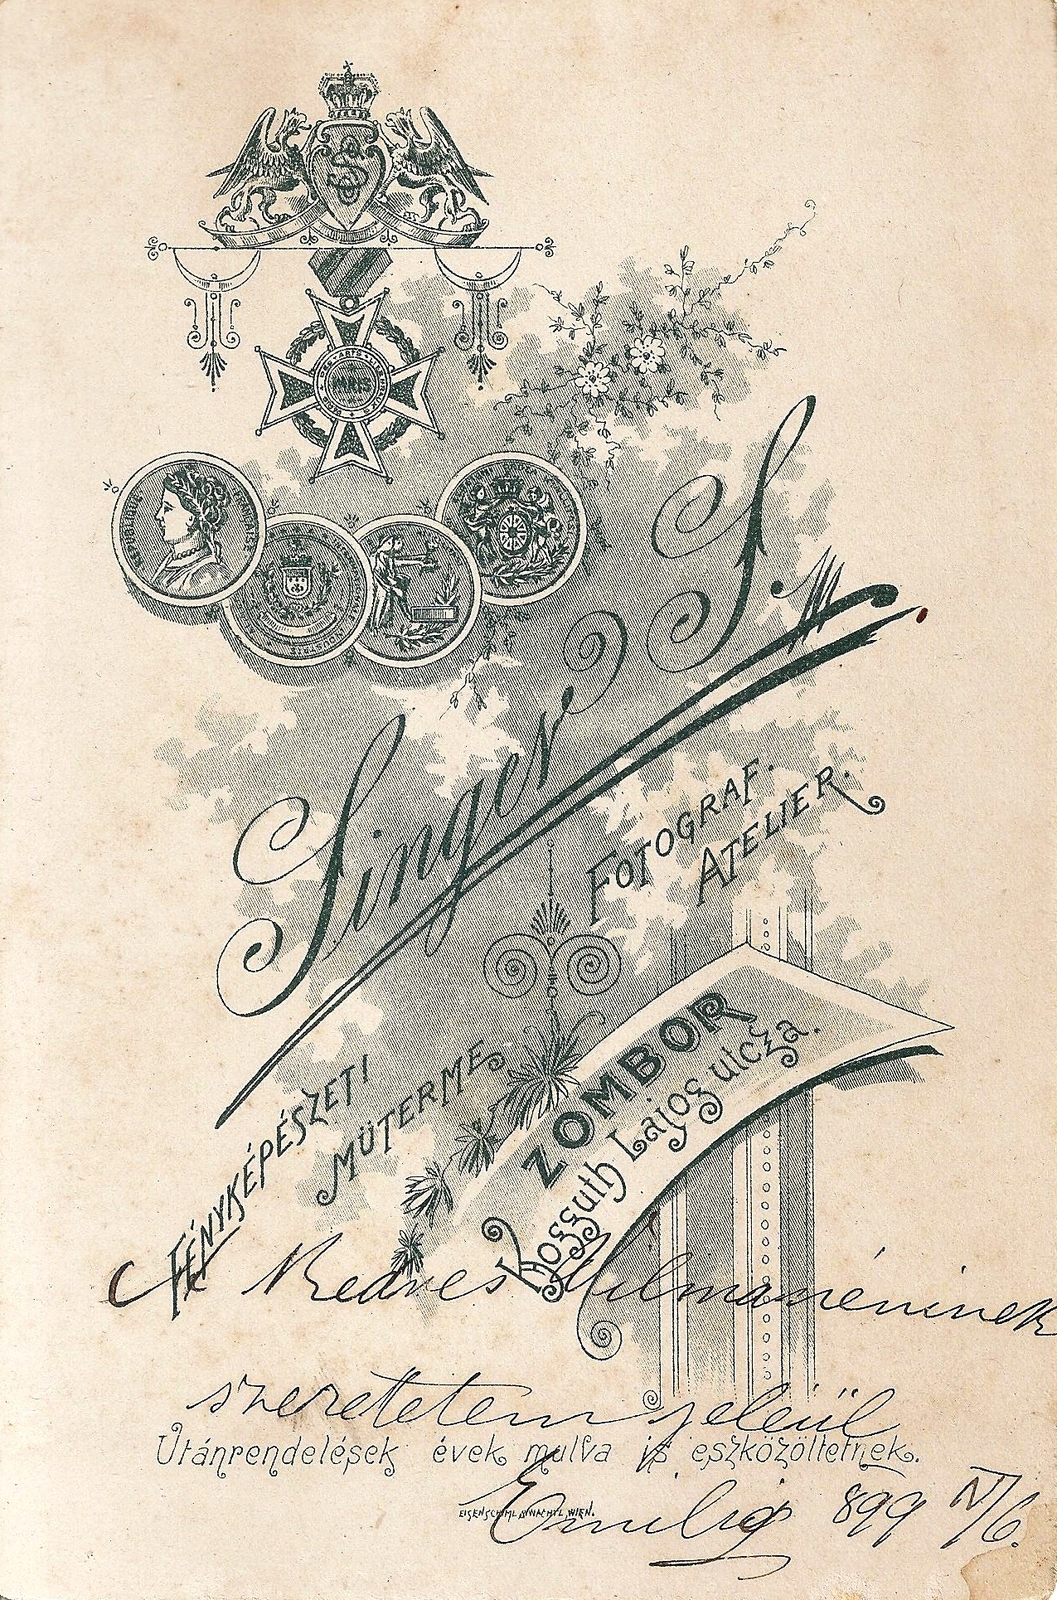 PARIS
RÉPUBLIQUE FRANÇAISE
Singer S.
FOTOGRAF.
ATELIER.
FÉNYKÉPÉSZETI
MŰTERME
ZOMBOR
Kossuth Lajos utcza.
Kedves Vilmanéninek
szeretetem jeléül
Utánrendelések évek mulva is eszközöltetnek.
EISENSCHIML & WACHTL, WIEN.
Emilia 899 IV/6.